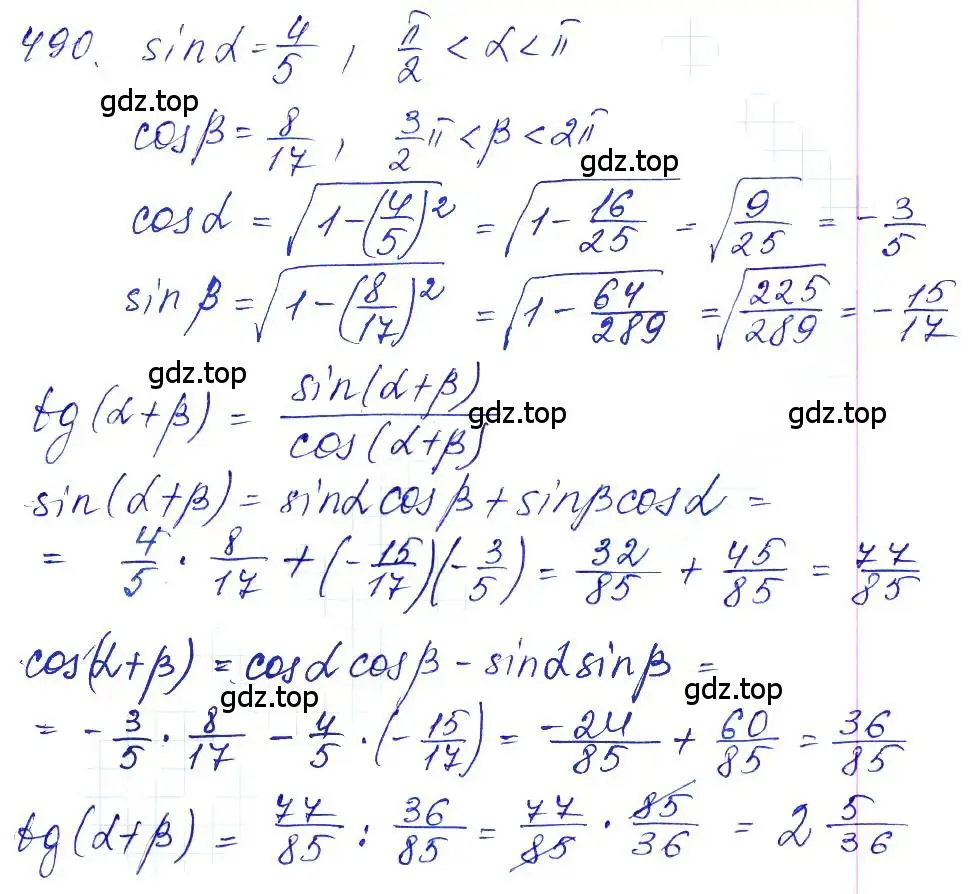 490. sinα = 4/5 , π/2 < α < π
gdz.top
cosβ = 8/17 , 3/2 π < β < 2π
gdz.top
cosα = √(1-(4/5)²) = √(1 - 16/25) = √(9/25) = - 3/5
sinβ = √(1-(8/17)²) = √(1 - 64/289) = √(225/289) = - 15/17
gdz.top
tg(α+β) = sin(α+β)/cos(α+β)
gdz.top gdz.top
sin(α+β) = sinα cosβ + sinβ cosα =
= 4/5 · 8/17 + (- 15/17)(- 3/5) = 32/85 + 45/85 = 77/85
cos(α+β) = cosα cosβ - sinα sinβ =
gdz.top gdz.top
= - 3/5 · 8/17 - 4/5 · (- 15/17) = -24/85 + 60/85 = 36/85
tg(α+β) = 77/85 : 36/85 = 77/85 · 85/36 = 2 5/36